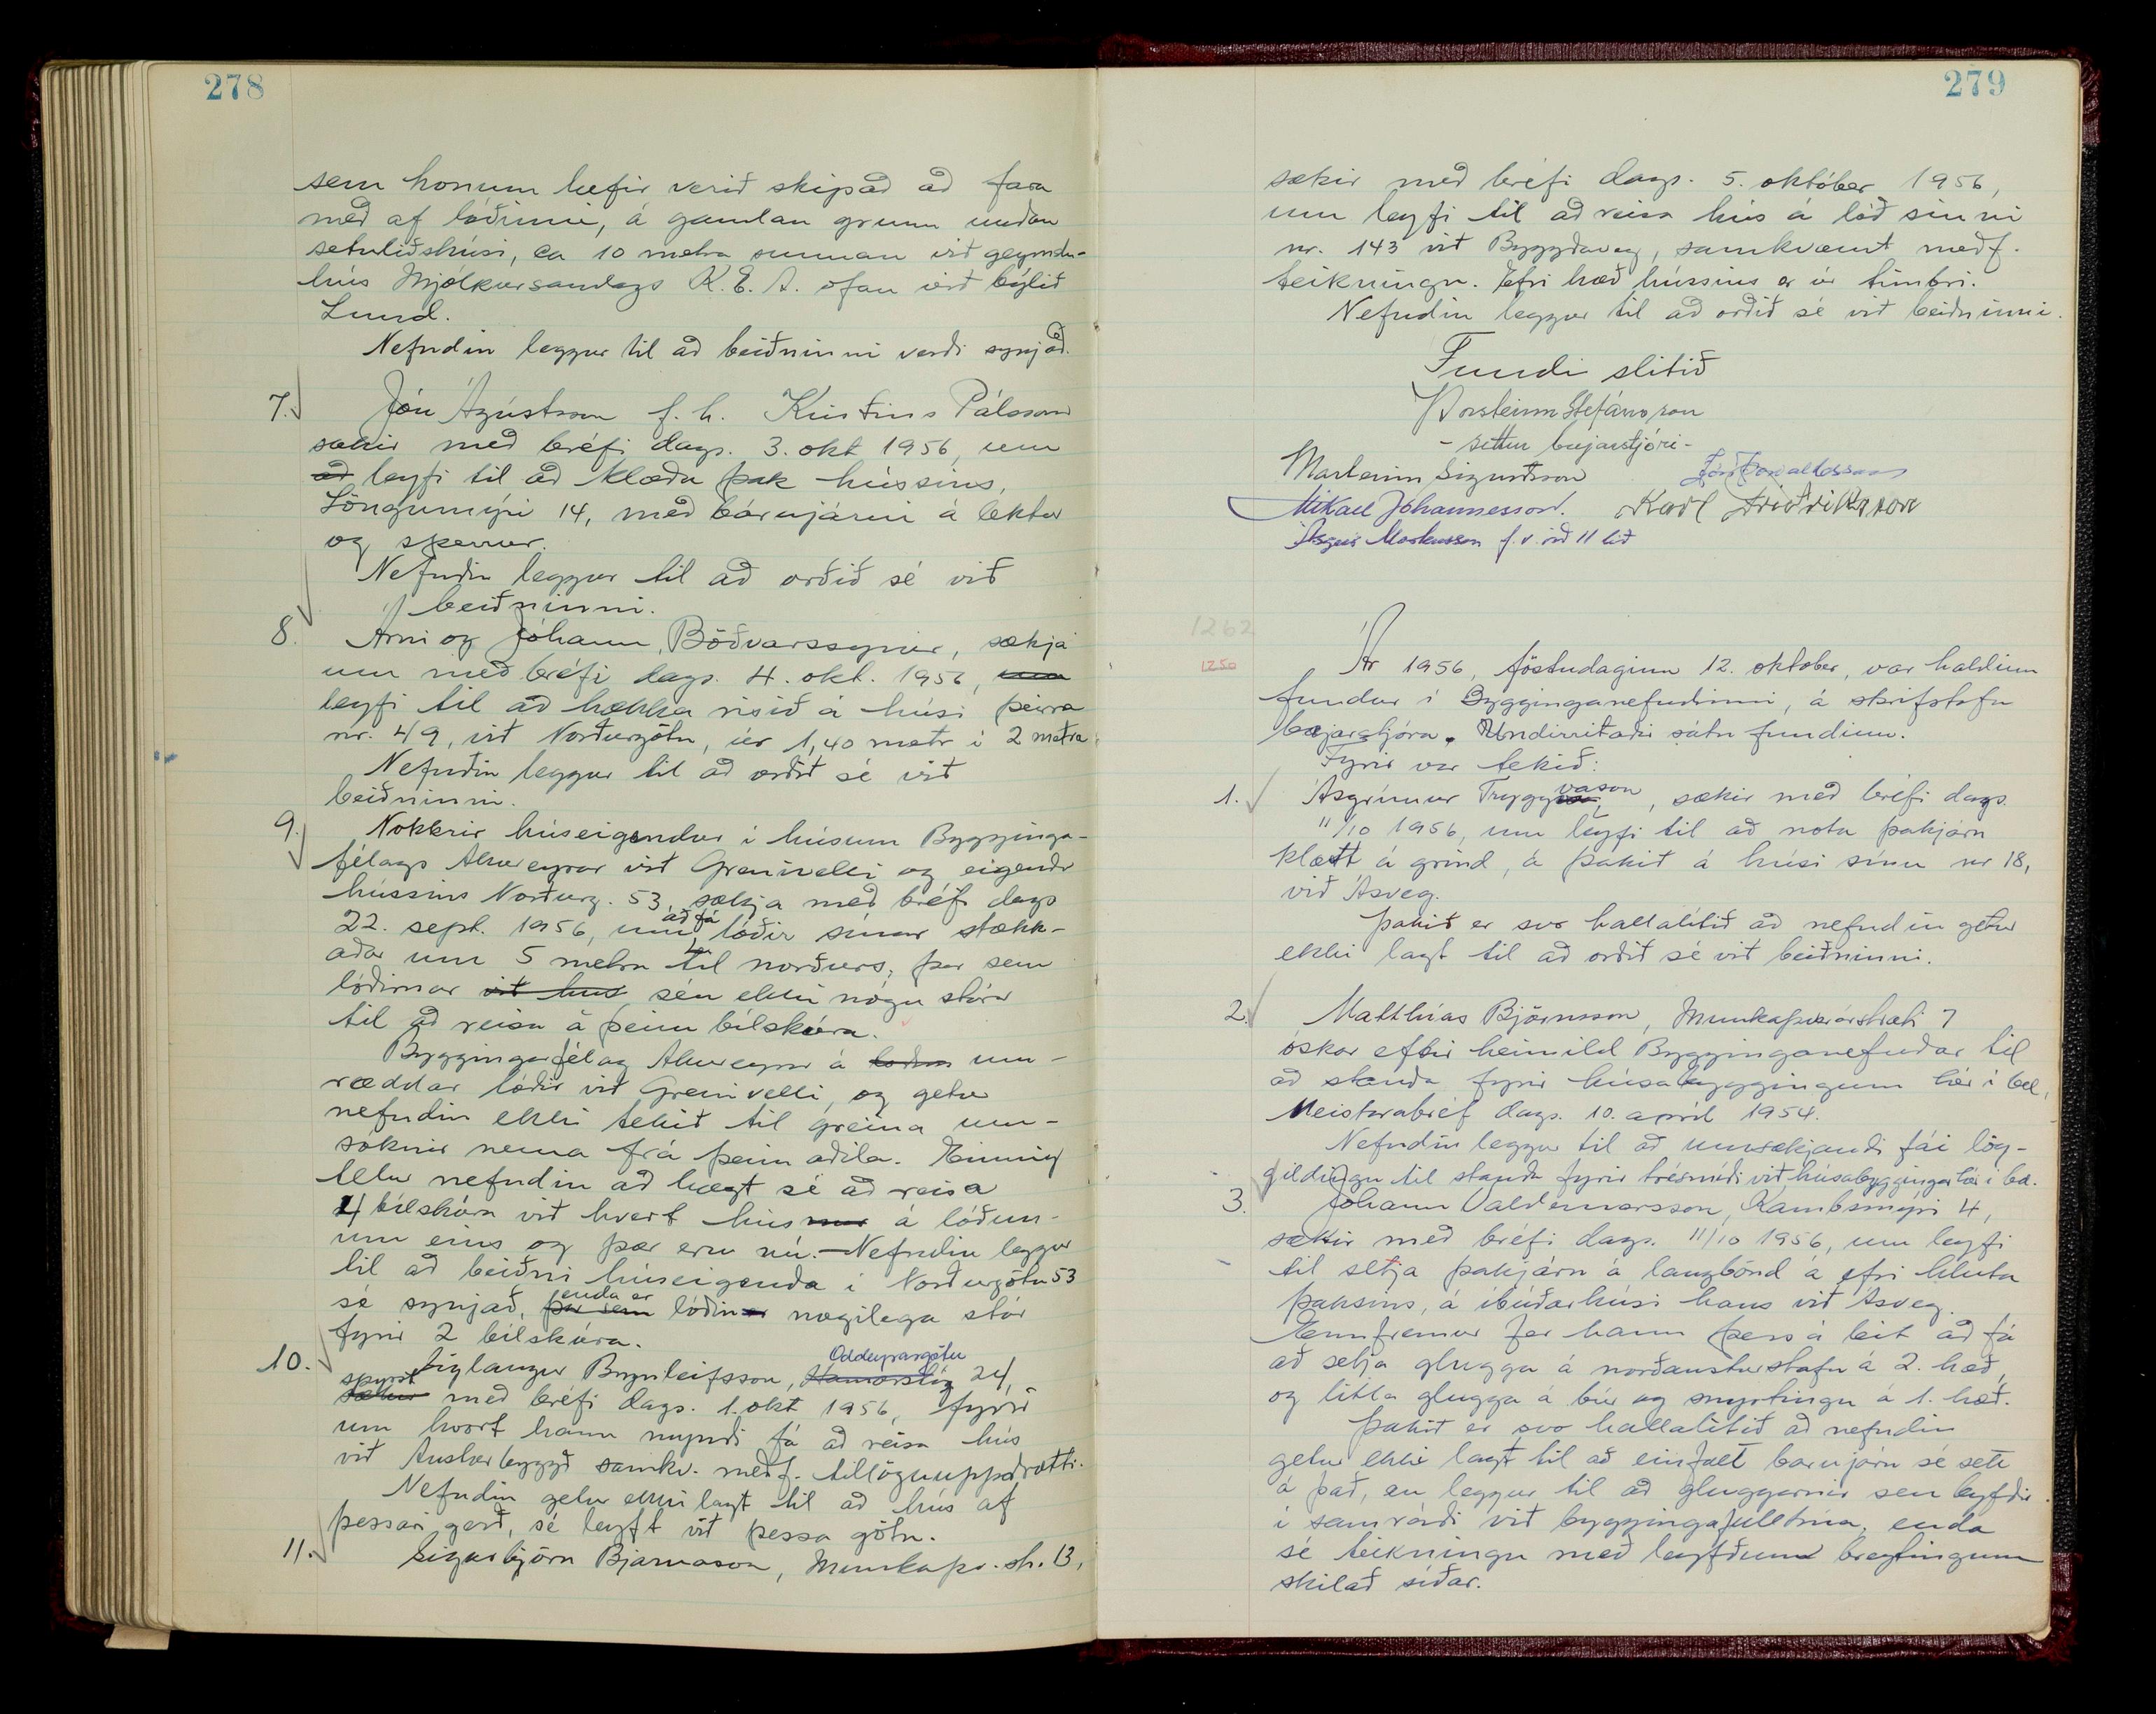 278
sem honum hefir verið skipað að fara
með af lóðinni, á gamlan grunn undan
setuliðshúsi, ca 10 metra sunnan við geymslu-
hús Mjólkursamlags K.E.A. ofan við býlið
Lund.
Nefndin leggur til að beiðninni verði synjað.
7. Jón Ágústsson f.h. Kristins Pálssonar
sækir með bréfi dags. 3. okt 1956, um
að leyfi til að klæða þak hússins,
Löngumýri 14, með bárujárni á lektur
og sperrur.
Nefndin leggur til að orðið sé við
beiðninni.
8. Árni og Jóhann, Böðvarssynir, sækja
um með bréfi dags. 4. okt. 1956, um
leyfi til að hækka risið á húsi þeirra
nr. 49, við Norðurgötu, úr 1,40 metr í 2 metra.
Nefndin leggur til að orðið sé við
beiðninni.
9. Nokkrir húseigendur í húsum Bygginga-
félags Akureyrar við Grenivelli og eigendur
hússins Norðurg. 53, sækja með bréfi dags
22. sept. 1956, um að fá lóðir sínar stækk-
aðar um 5 metra til norðurs, þar sem
lóðirnar við hús séu ekki nógu stórar
til að reisa á þeim bílskúra.
Byggingarfélag Akureyrar á lóðirn um-
ræddar lóðir við Grenivelli, og getur
nefndin ekki tekið til greina um-
sóknir nema frá þeim aðila. Einnig
telur nefndin að hægt sé að reisa
4 bílskúra við hvert hús á lóðun-
um eins og þær eru nú. — Nefndin leggur
til að beiðni húseigenda í Norðurgötu 53
sé synjað, þar sem enda er lóðin nægilega stór
fyrir 2 bílskúra.
10. Siglaugur Brynleifsson, Hamarstíg Oddeyrargötu 24,
sækir spyrst með bréfi dags. 1. okt 1956, fyrir
um hvort hann myndi fá að reisa hús
við Austurbyggð samkv. meðf. tillöguuppdrætti.
Nefndin getur ekki lagt til að hús af
þessari gerð, sé leyft við þessa götu.
11. Sigurbjörn Bjarnason, Munkaþv.str. 13,
279
sækir með bréfi dags. 5. október 1956,
um leyfi til að reisa hús á lóð sinni
nr. 143 við Byggðaveg, samkvæmt meðf.
teikningu. Efri hæð hússins er úr timbri.
Nefndin leggur til að orðið sé við beiðninni.
Fundi slitið
Þorsteinn Stefánsson
- settur bæjarstjóri -
Marteinn Sigurðsson
Mikael Jóhannesson. Karl Friðriksson
Ásgeir Markusson f.v. við 11 lið
1262
1250
Ár 1956, föstudaginn 12. október, var haldinn
fundur í Bygginganefndinni, á skrifstofu
bæjarstjóra. Undirritaðir sátu fundinn.
Fyrir var tekið:
1. Ásgrímur Tryggvason, sækir með bréfi dags.
11/10 1956, um leyfi til að nota þakjárn
klætt á grind, á þakið á húsi sínu nr 18,
við Ásveg.
Þakið er svo hallalítið að nefndin getur
ekki lagt til að orðið sé við beiðninni.
2. Matthías Björnsson, Munkaþverárstræti 7
óskar eftir heimild Bygginganefndar til
að standa fyrir húsabyggingum hér í bæ,
Meistarabréf dags. 10. apríl 1954.
Nefndin leggur til að umsækjandi fái lög-
gildingu til standa fyrir trésmíði við húsabyggingar hér í bæ.
3. Jóhann Valdemarsson, Kambsmýri 4,
sækir með bréfi dags. 11/10 1956, um leyfi
til setja þakjárn á langbönd á efri hluta
þaksins, á íbúðarhúsi hans við Ásveg.
Ennfremur fer hann þess á leit að fá
að setja glugga á norðausturstofu á 2. hæð,
og litla glugga á búr og snyrtingu á 1. hæð.
Þakið er svo hallalítið að nefndin
getur ekki lagt til að einfalt bárujárn sé sett
á það, en leggur til að gluggarnir séu leyfðir
í samráði við byggingafulltrúa, enda
sé teikningu með leyfðum breytingum
skilað síðar.